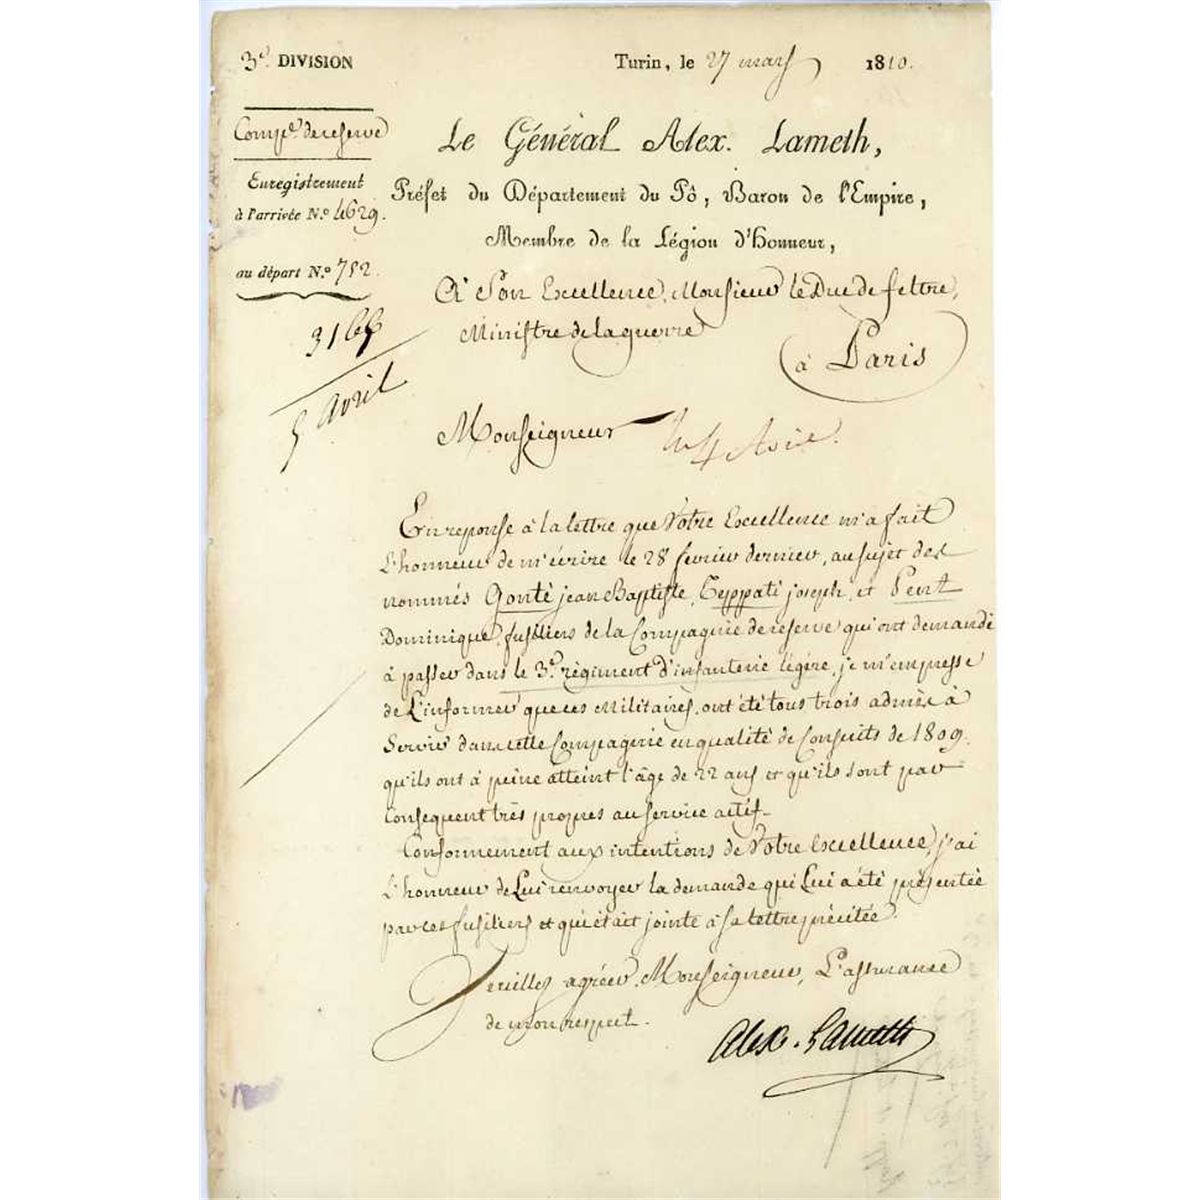 3e. DIVISION
Turin, le 27 mars 1810.
Compe. de reserve
Enregistrement
à l'arrivée N.o 4629.
au départ N.o 752.
5 avril
Le Général Alex. Lameth,
Préfet du Département du Pô, Baron de l'Empire,
Membre de la Légion d'Honneur,
A Son Excellence, Monsieur le Duc de feltre,
Ministre de la guerre
à Paris
Monseigneur
En reponse à la lettre que Votre Excellence m'a fait
L'honneur de m'écrire le 28 fevrier dernier, au sujet des
nommés Gonté jean Baptiste, Teppati joseph, et
Dominique, fusiliers de la Compagnie de reserve qui ont demandé
à passer dans le 3e. régiment d'infanterie légère, je m'empresse
de L'informer que ces Militaires, ont été tous trois admis à
Servir dans cette Compagnie en qualité de Conscrits de 1809.
qu'ils ont à peine atteint l'âge de 22 ans et qu'ils sont par
Consequent très propres au service actif.
Conformement aux intentions de Votre Excellence, j'ai
L'honneur de Lui renvoyer la demande qui Lui a été présentée
par ces fusiliers et qui était jointe à sa lettre précitée.
Veuillez agréer, Monseigneur, L'assurance
de mon respect.
Alex. Lameth